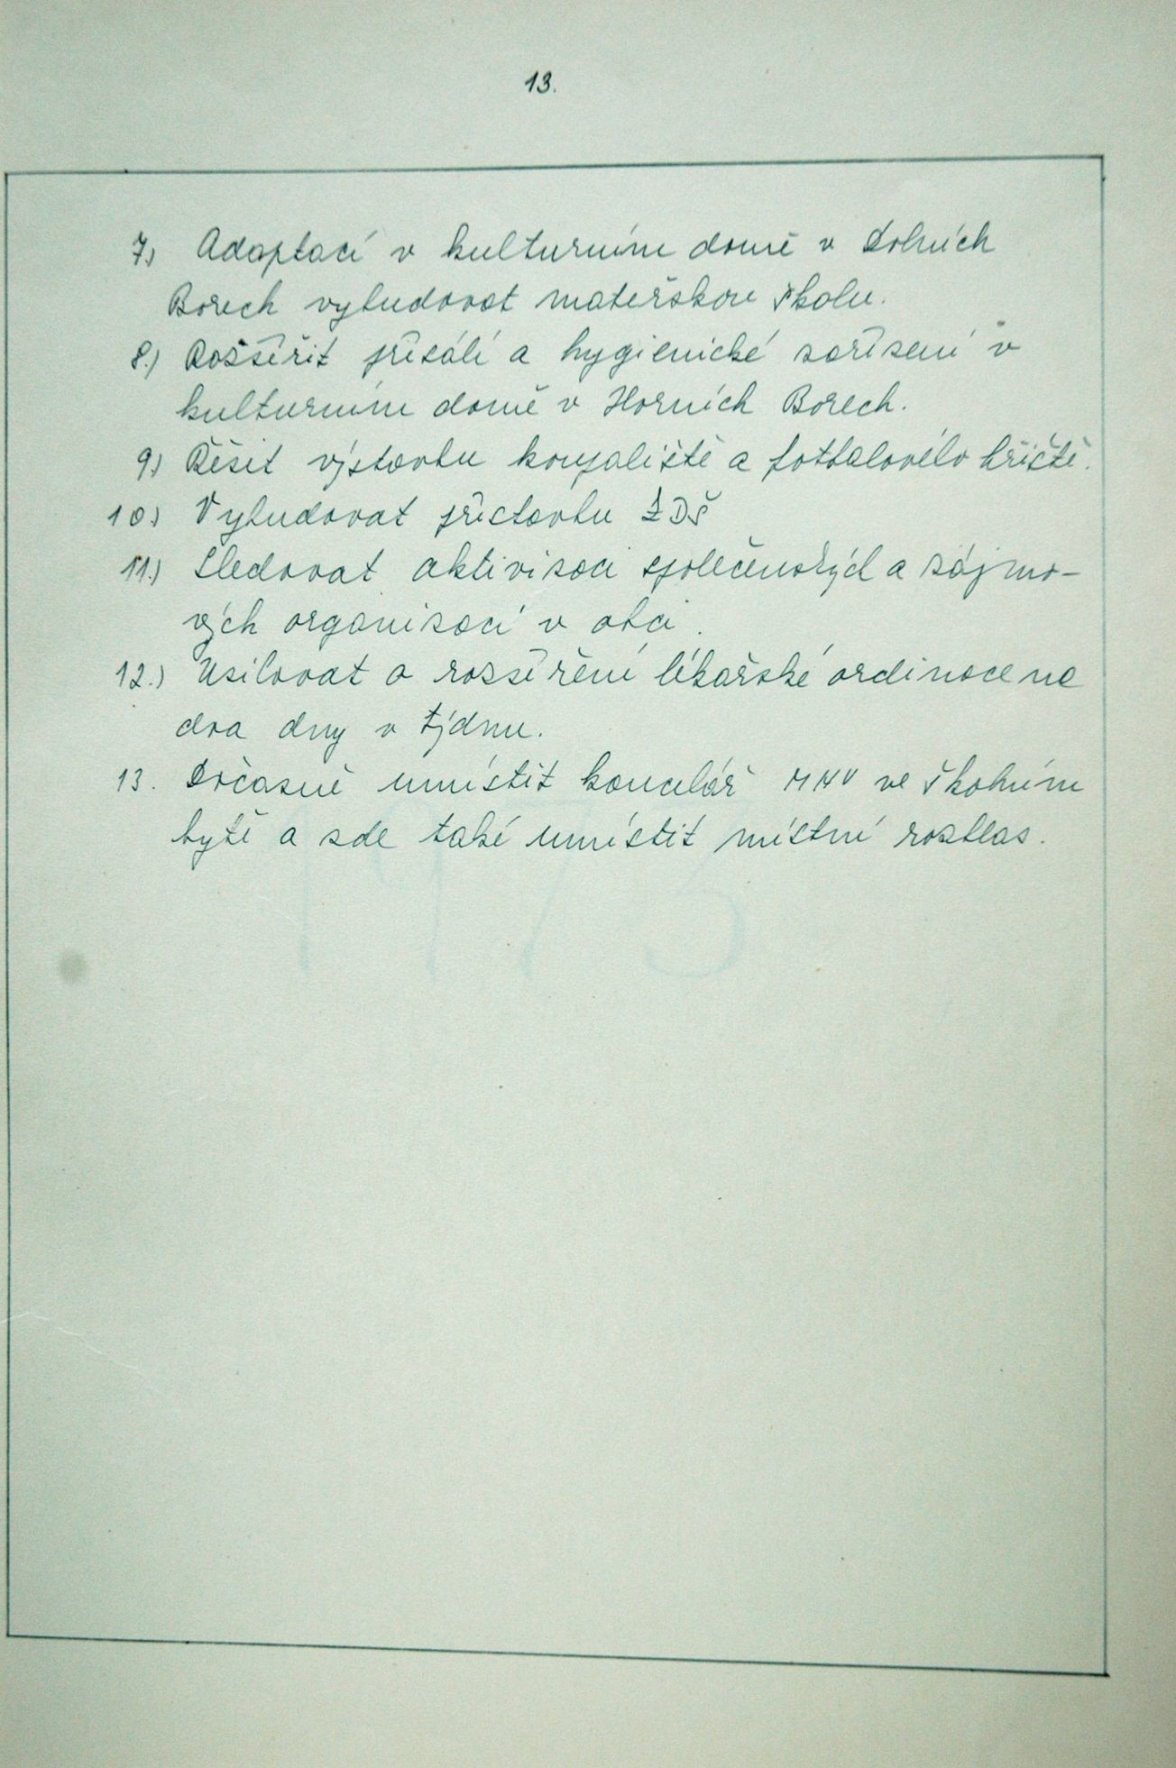 13.
7) Adaptací v kulturním domě v Dolních
Borech vybudovat mateřskou školu.
8.) Rošířit přísálí a hygienické zařízení v
kulturním domě v Horních Borech.
9) Řešit výstavbu koupaliště a fotbalového hřiště.
10) Vybudovat přístavbu ZDŠ
11.) Sledovat aktivizaci společenských a zájmo-
vých organizací v obci.
12.) Usilovat o rozšíření lékařské ordinace na
dva dny v týdnu.
13. Dočasně umístit kancelář MNV ve školním
bytě a zde také umístit místní rozhlas.